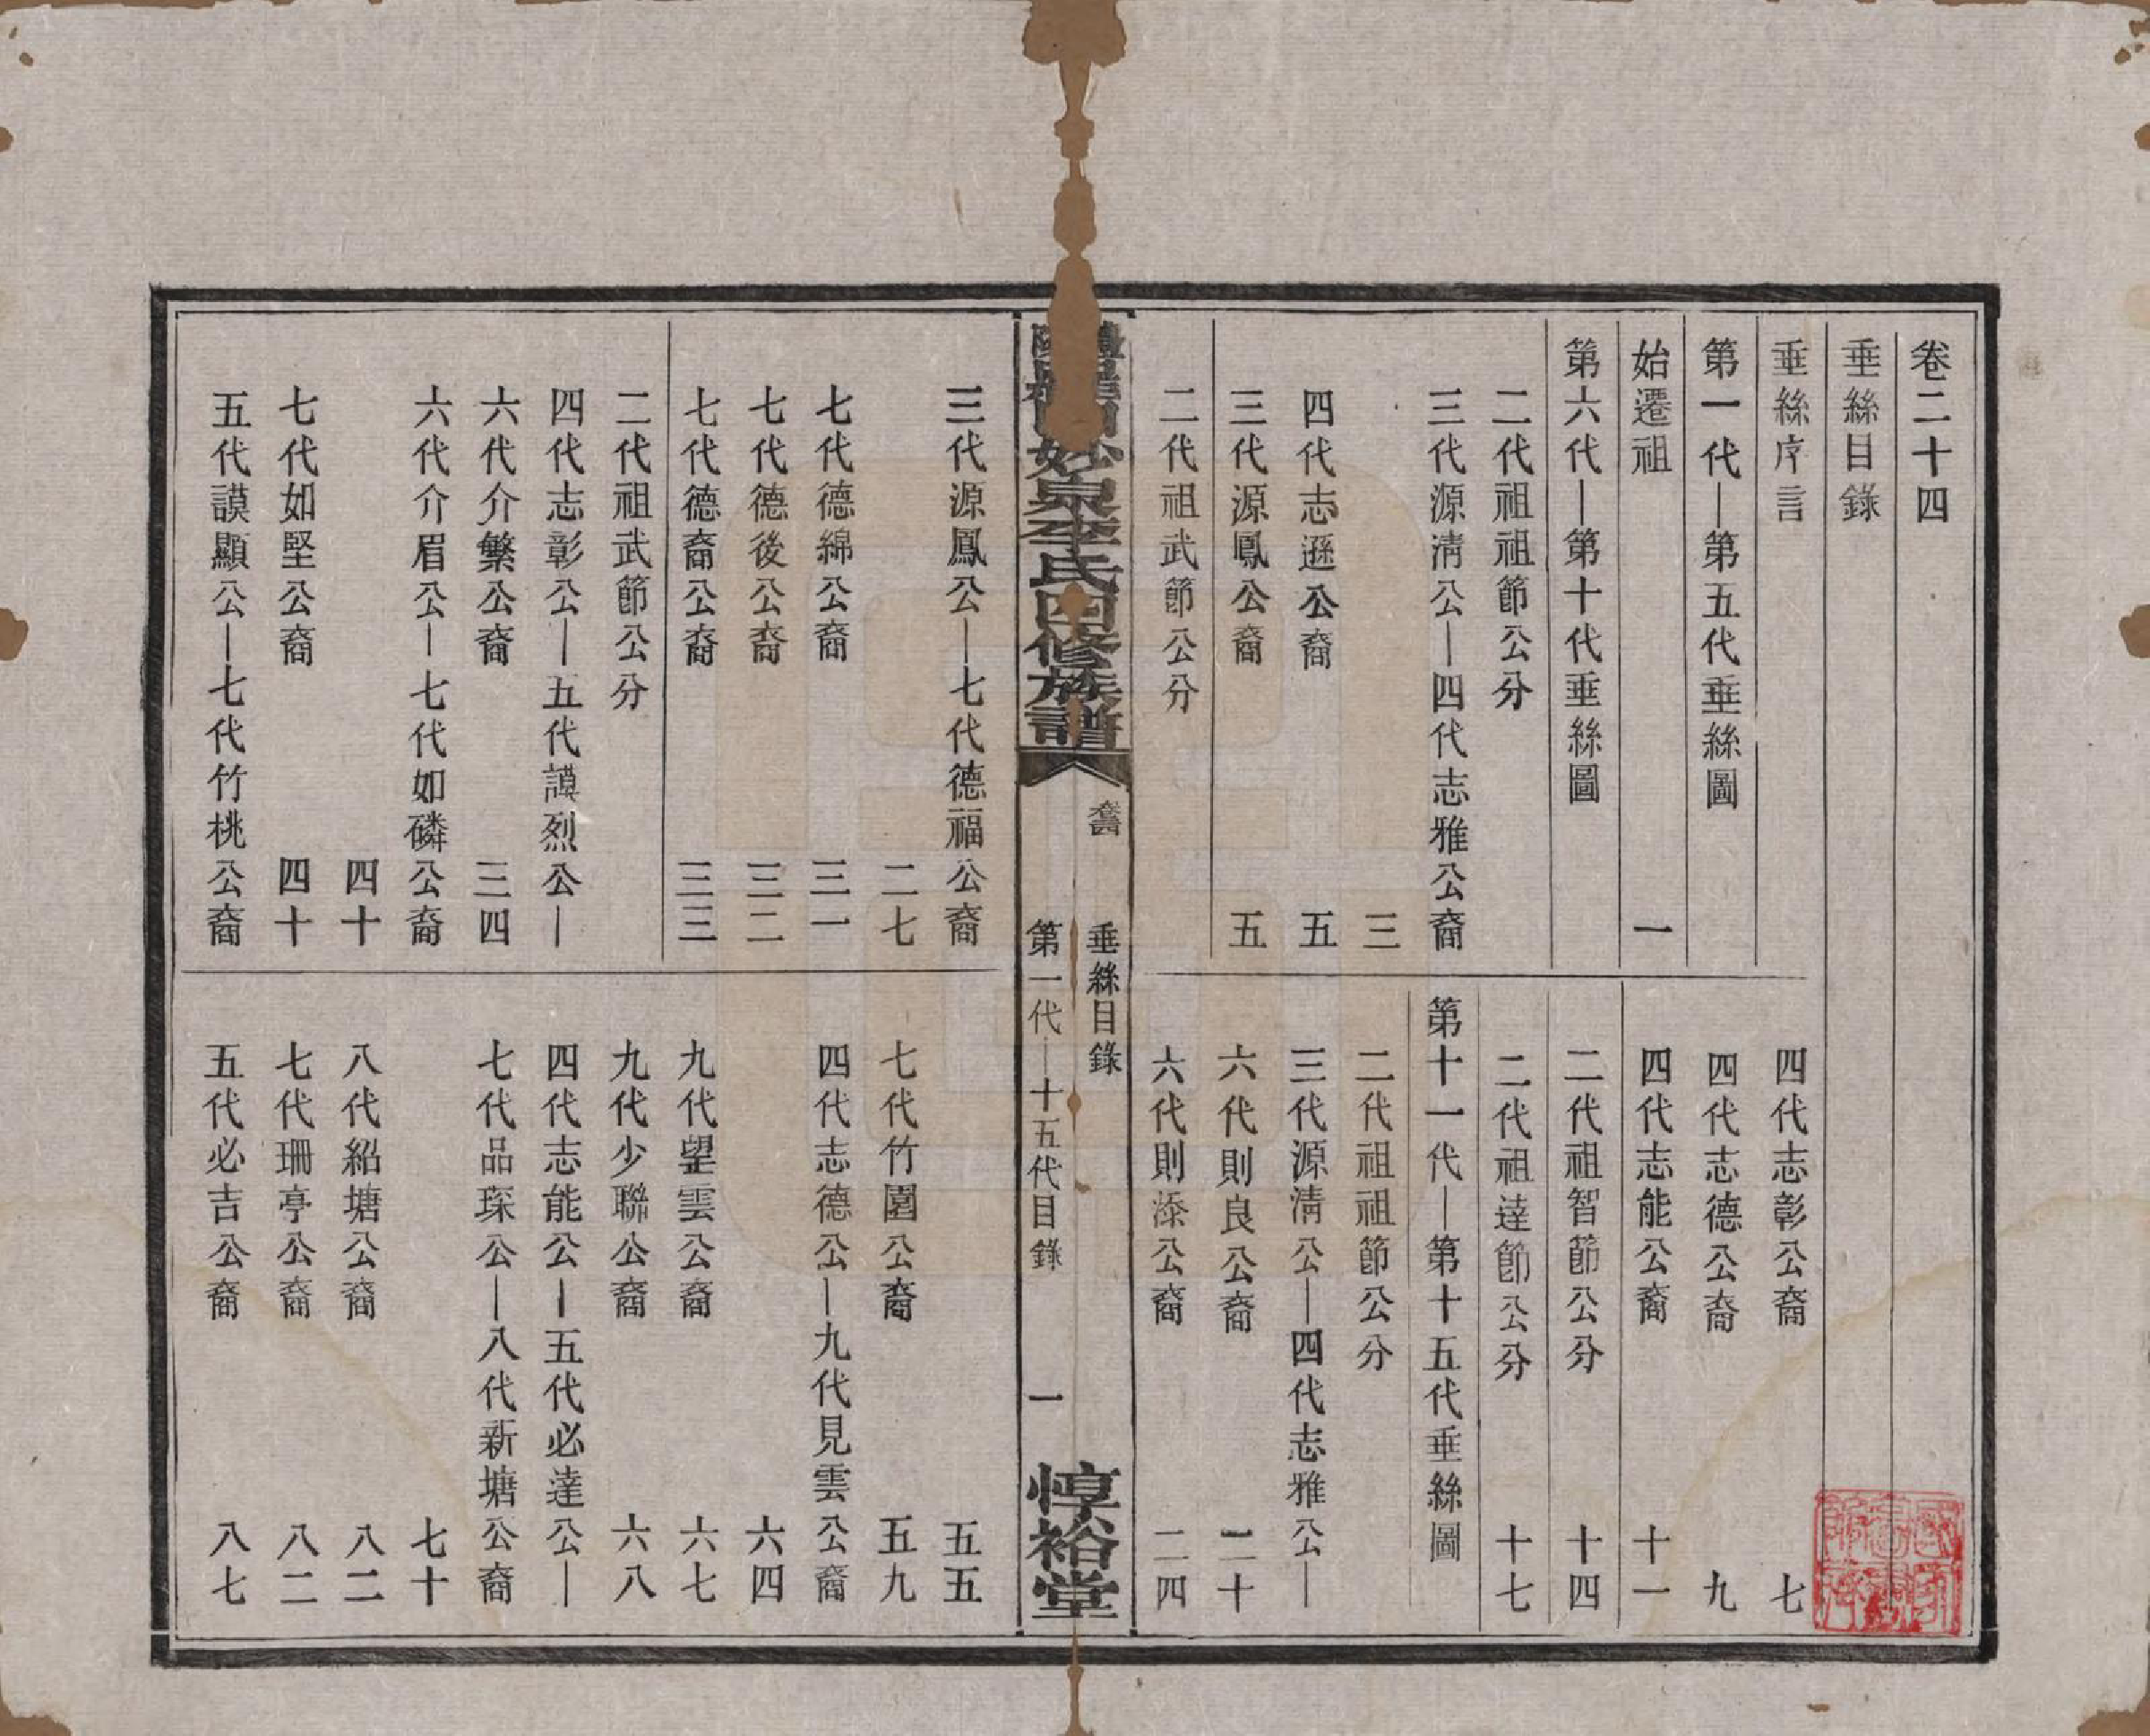 卷二十四
垂絲目錄
垂絲序言
第一代—第五代垂絲圖
始遷祖 一
第六代—第十代垂絲圖
二代祖祖節公分
三代源清公—四代志雅公裔
三
四代志遜公裔 五
三代源鳳公裔 五
二代祖武節公分
四代志彰公裔 七
四代志德公裔 九
四代志能公裔 十一
二代祖智節公分 十四
二代祖達節公分 十七
第十一代—第十五代垂絲圖
二代祖祖節公分
三代源清公—四代志雅公—
六代則良公裔 二十
六代則漆公裔 二四
妙泉李氏四修族譜
垂絲目錄
第一代—十五代目錄
一
惇裕堂
三代源鳳公—七代德福公裔
二七
七代德綿公裔 三一
七代德後公裔 三二
七代德裔公裔 三三
二代祖武節公分
四代志彰公—五代謨烈公—
六代介繁公裔 三四
六代介眉公—七代如磷公裔
四十
七代如堅公裔 四十
五代謨顯公—七代竹桃公裔
五五
七代竹園公裔 五九
四代志德公—九代見雲公裔
六四
九代望雲公裔 六七
九代少聯公裔 六八
四代志能公—五代必達公—
七代品琛公—八代新塘公裔
七十
八代紹塘公裔 八二
七代珊亭公裔 八二
五代必吉公裔 八七